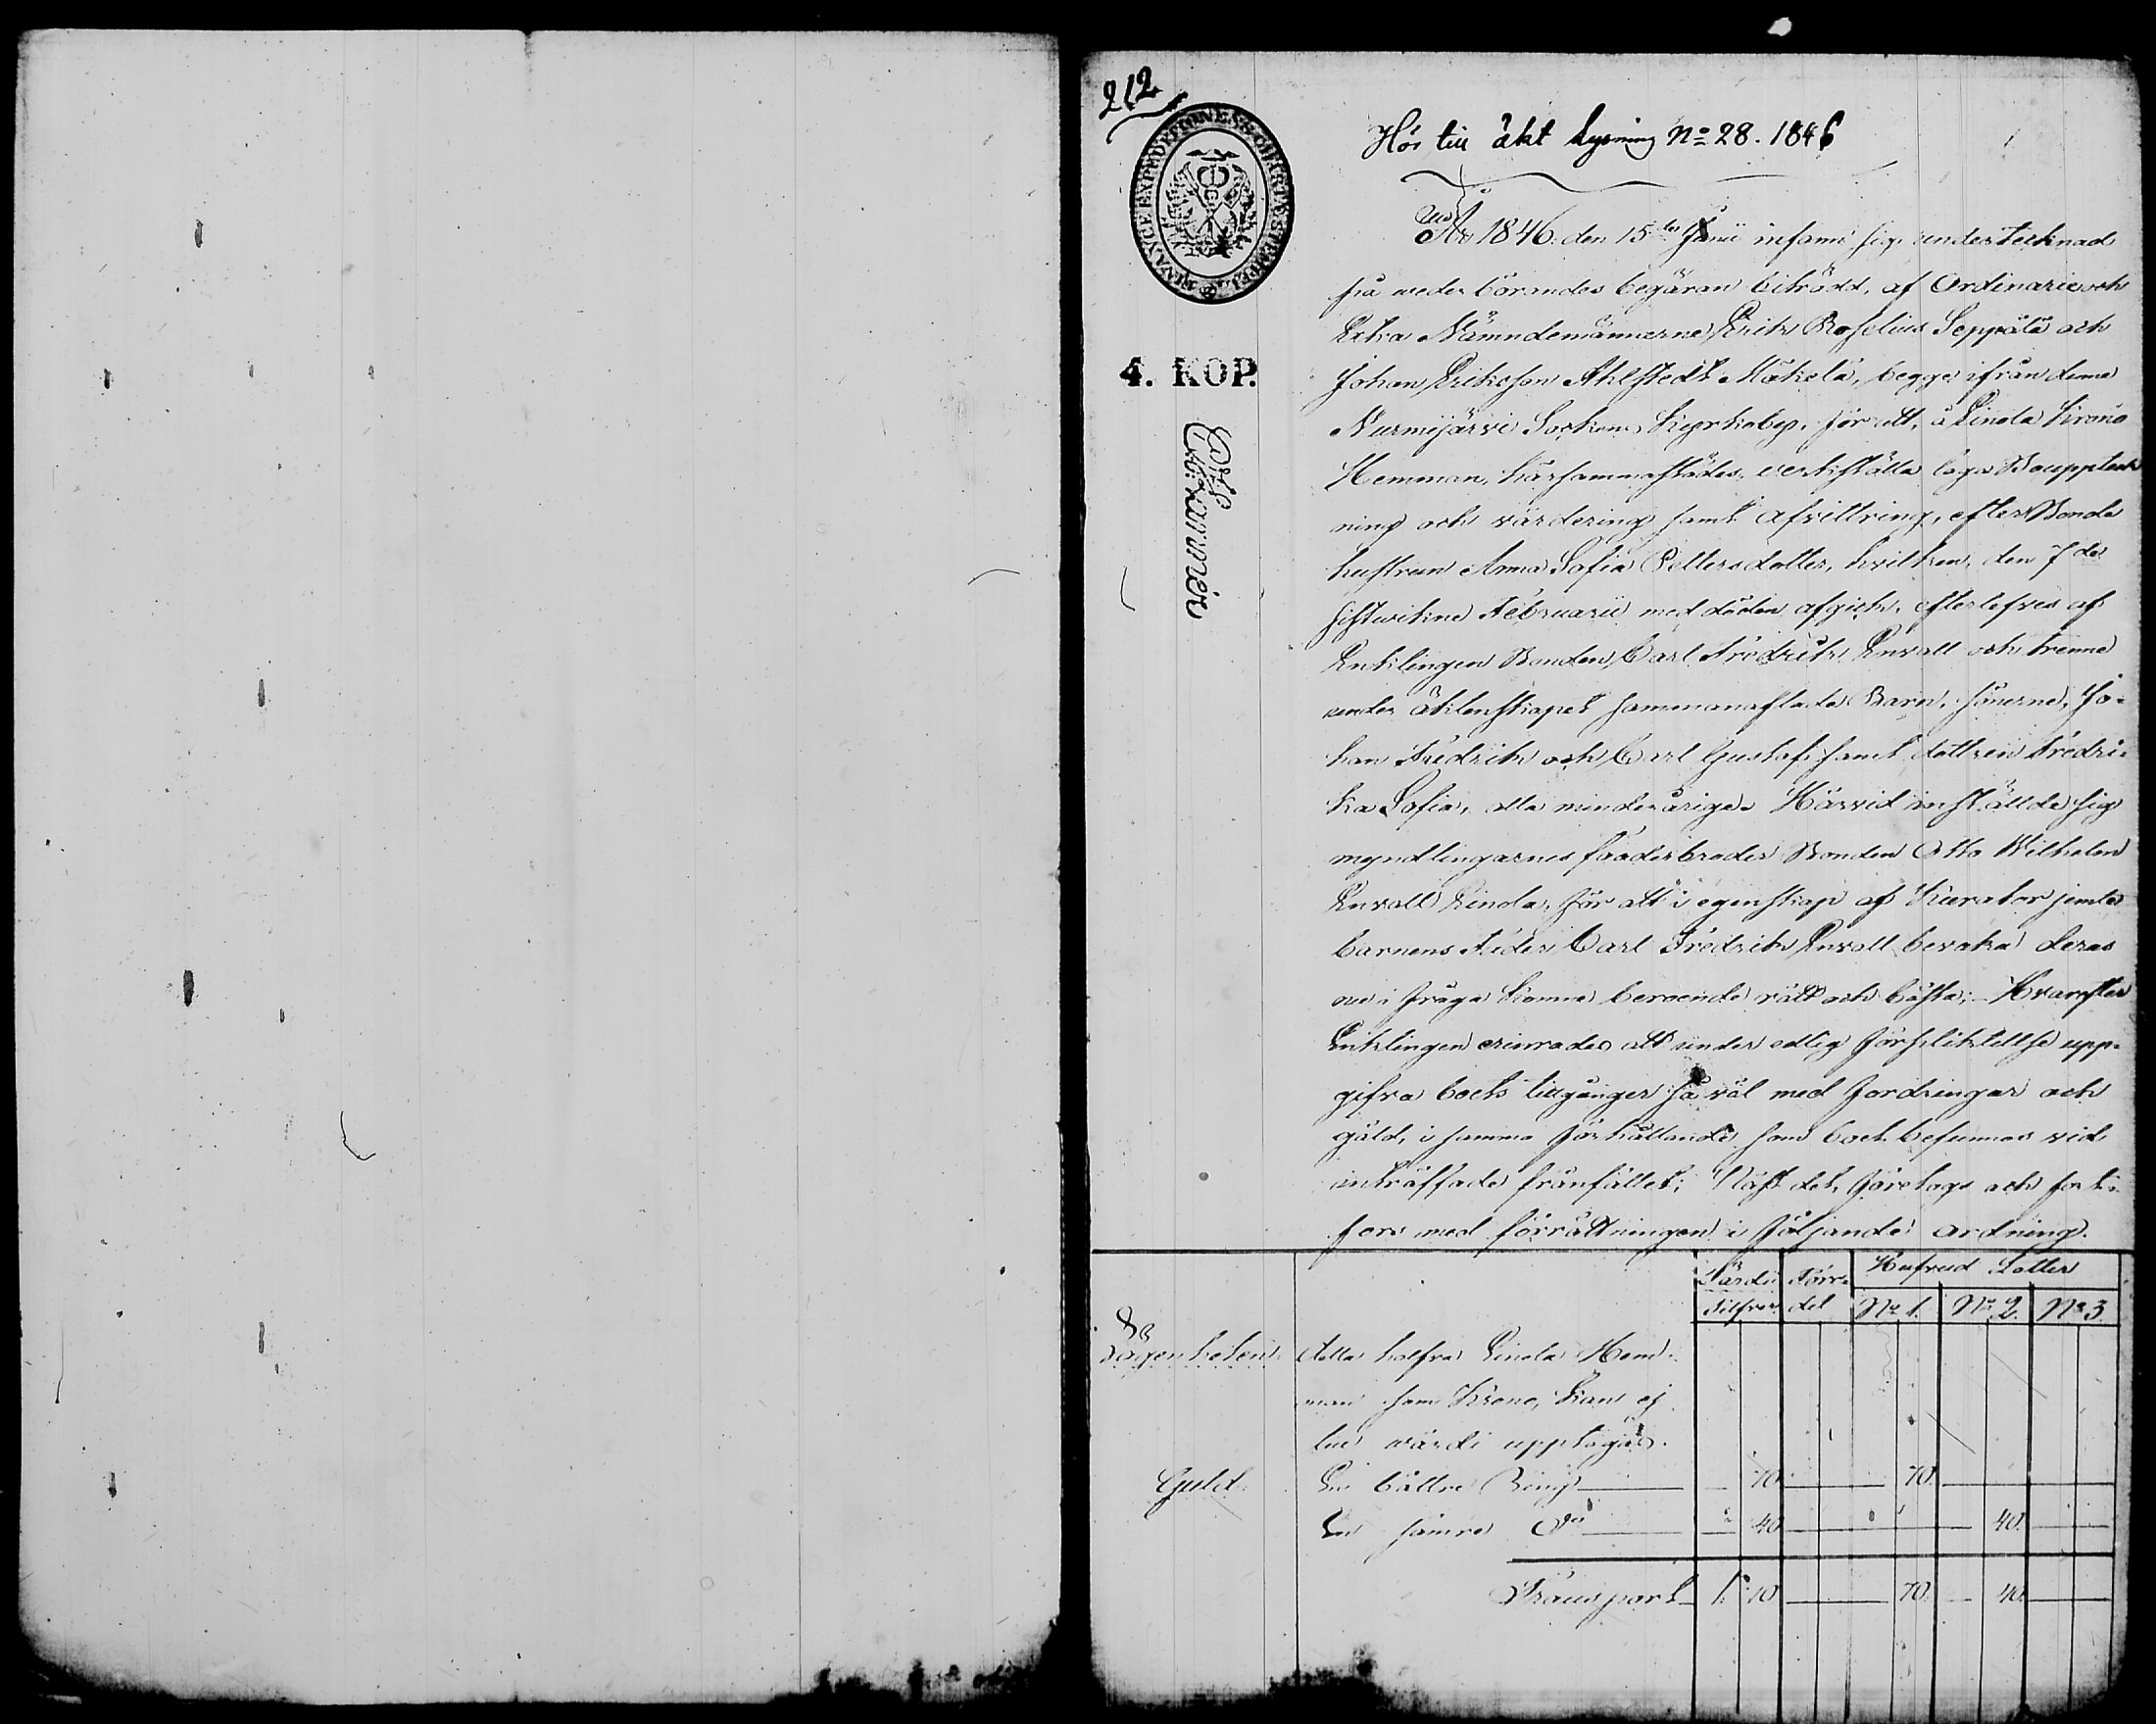 212
Hör till äkt lysning No 28. 1846
FINANCE EXPEDITIONENS CHARTÆ STEMPEL
4. KOP.
År 1846 den 15de Junii infann sig undertecknad
på wederbörandes begäran biträdd, af Ordinarie och
Extra Nämndemännerne Erik Roselius Seppälä och
Johan Eriksson Ahlstedt Mäkelä, begge ifrån denna
Nurmijärvi Socken, Kyrkoby, för att, å Einola Krono
Hemman, härsammastädes, verkställa laga Boupptek
ning och värdering samt afvittring, efter Bonde
hustrun Anna Sofia Pettersdotter, hvilken, den 7de
sistvikne Februarii med döden afgick, efterlefves af
Enklingen Bonden Carl Fredrik Envall och trenne
under äktenskapet sammanaflade Barn, sönerne, Jo-
han Fredrik och Carl Gustaf samt dottren Fredri-
ka Sofia, alla minderåriga. Härvid inställde sig
myndlingarnes faderbroder Bonden Otto Wilhelm
Envall Einola, för att i egenskap af Kurator jemte
barnens Fader Carl Fredrik Envall bevaka deras
nu i fråga komne beroende rätt och bästa; Hvarefter
Enklingen erinrades att under edlig förpliktellse upp-
gifva boets tillgånger så väl med fordringar och
gäld, i samma förhållande som boet befunnes vid
inträffade frånfället; Näst det, företogs och fort-
fors med förrättningen i följande ordning.
Värdi Förr- Hufvud Lotter
Silfver. del No 1. No 2. No 3.
Lägenheten Detta halfva Einola Hem-
man som Krono, kan ej
till wärdi upptagas.
Guld. En bättre Ring 70. 70.
En sämre Do 40 40.
Transport 1. 10 70. 40.